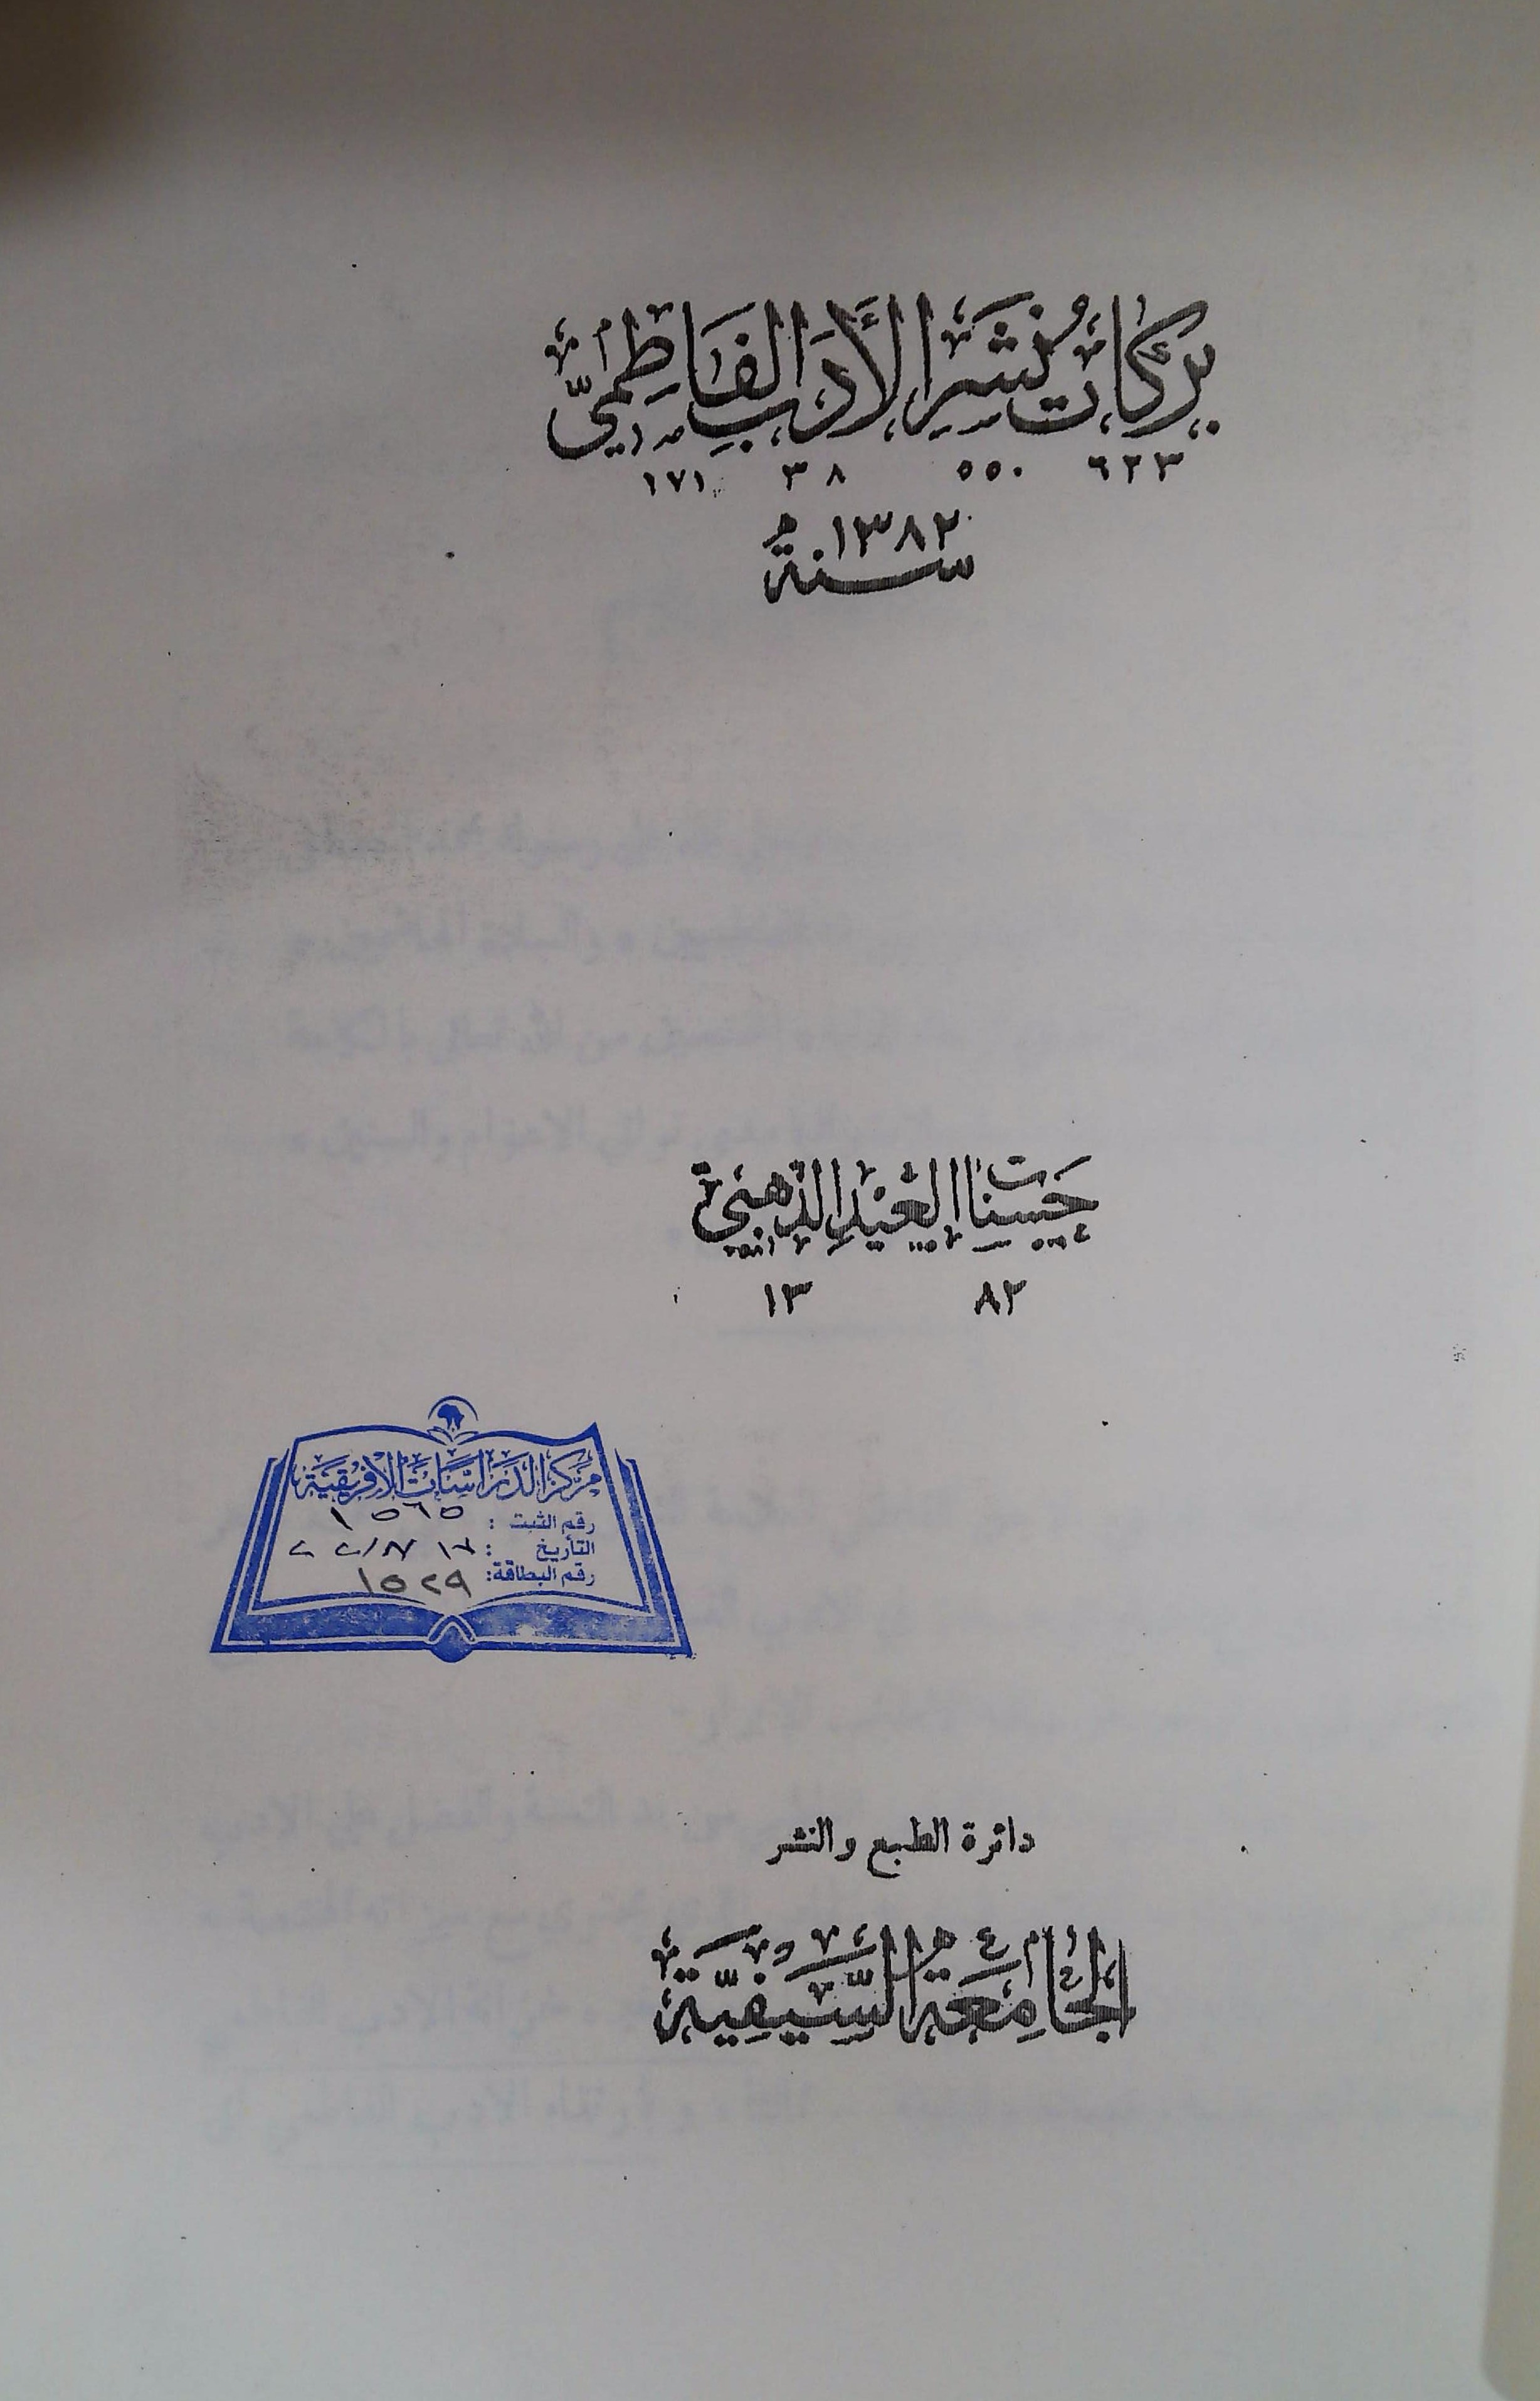 بَرَكَاتُ نَشْرِ الْأَدَبِ الْفَاطِمِيِّ
٦٢٣ ٥٥٠ ٣٨ ١٧١
١٣٨٢
سنة
حَسَنَات العِيْدِ الذهبِي
٨٢ ١٣
مركز الدراسات الافريقية
رقم الثبت : ١٥٦٥
التأريخ :
رقم البطاقة: ١٥٢٩
دائرة الطبع والنشر
الْجَامِعَة السَّيْفِيَّة